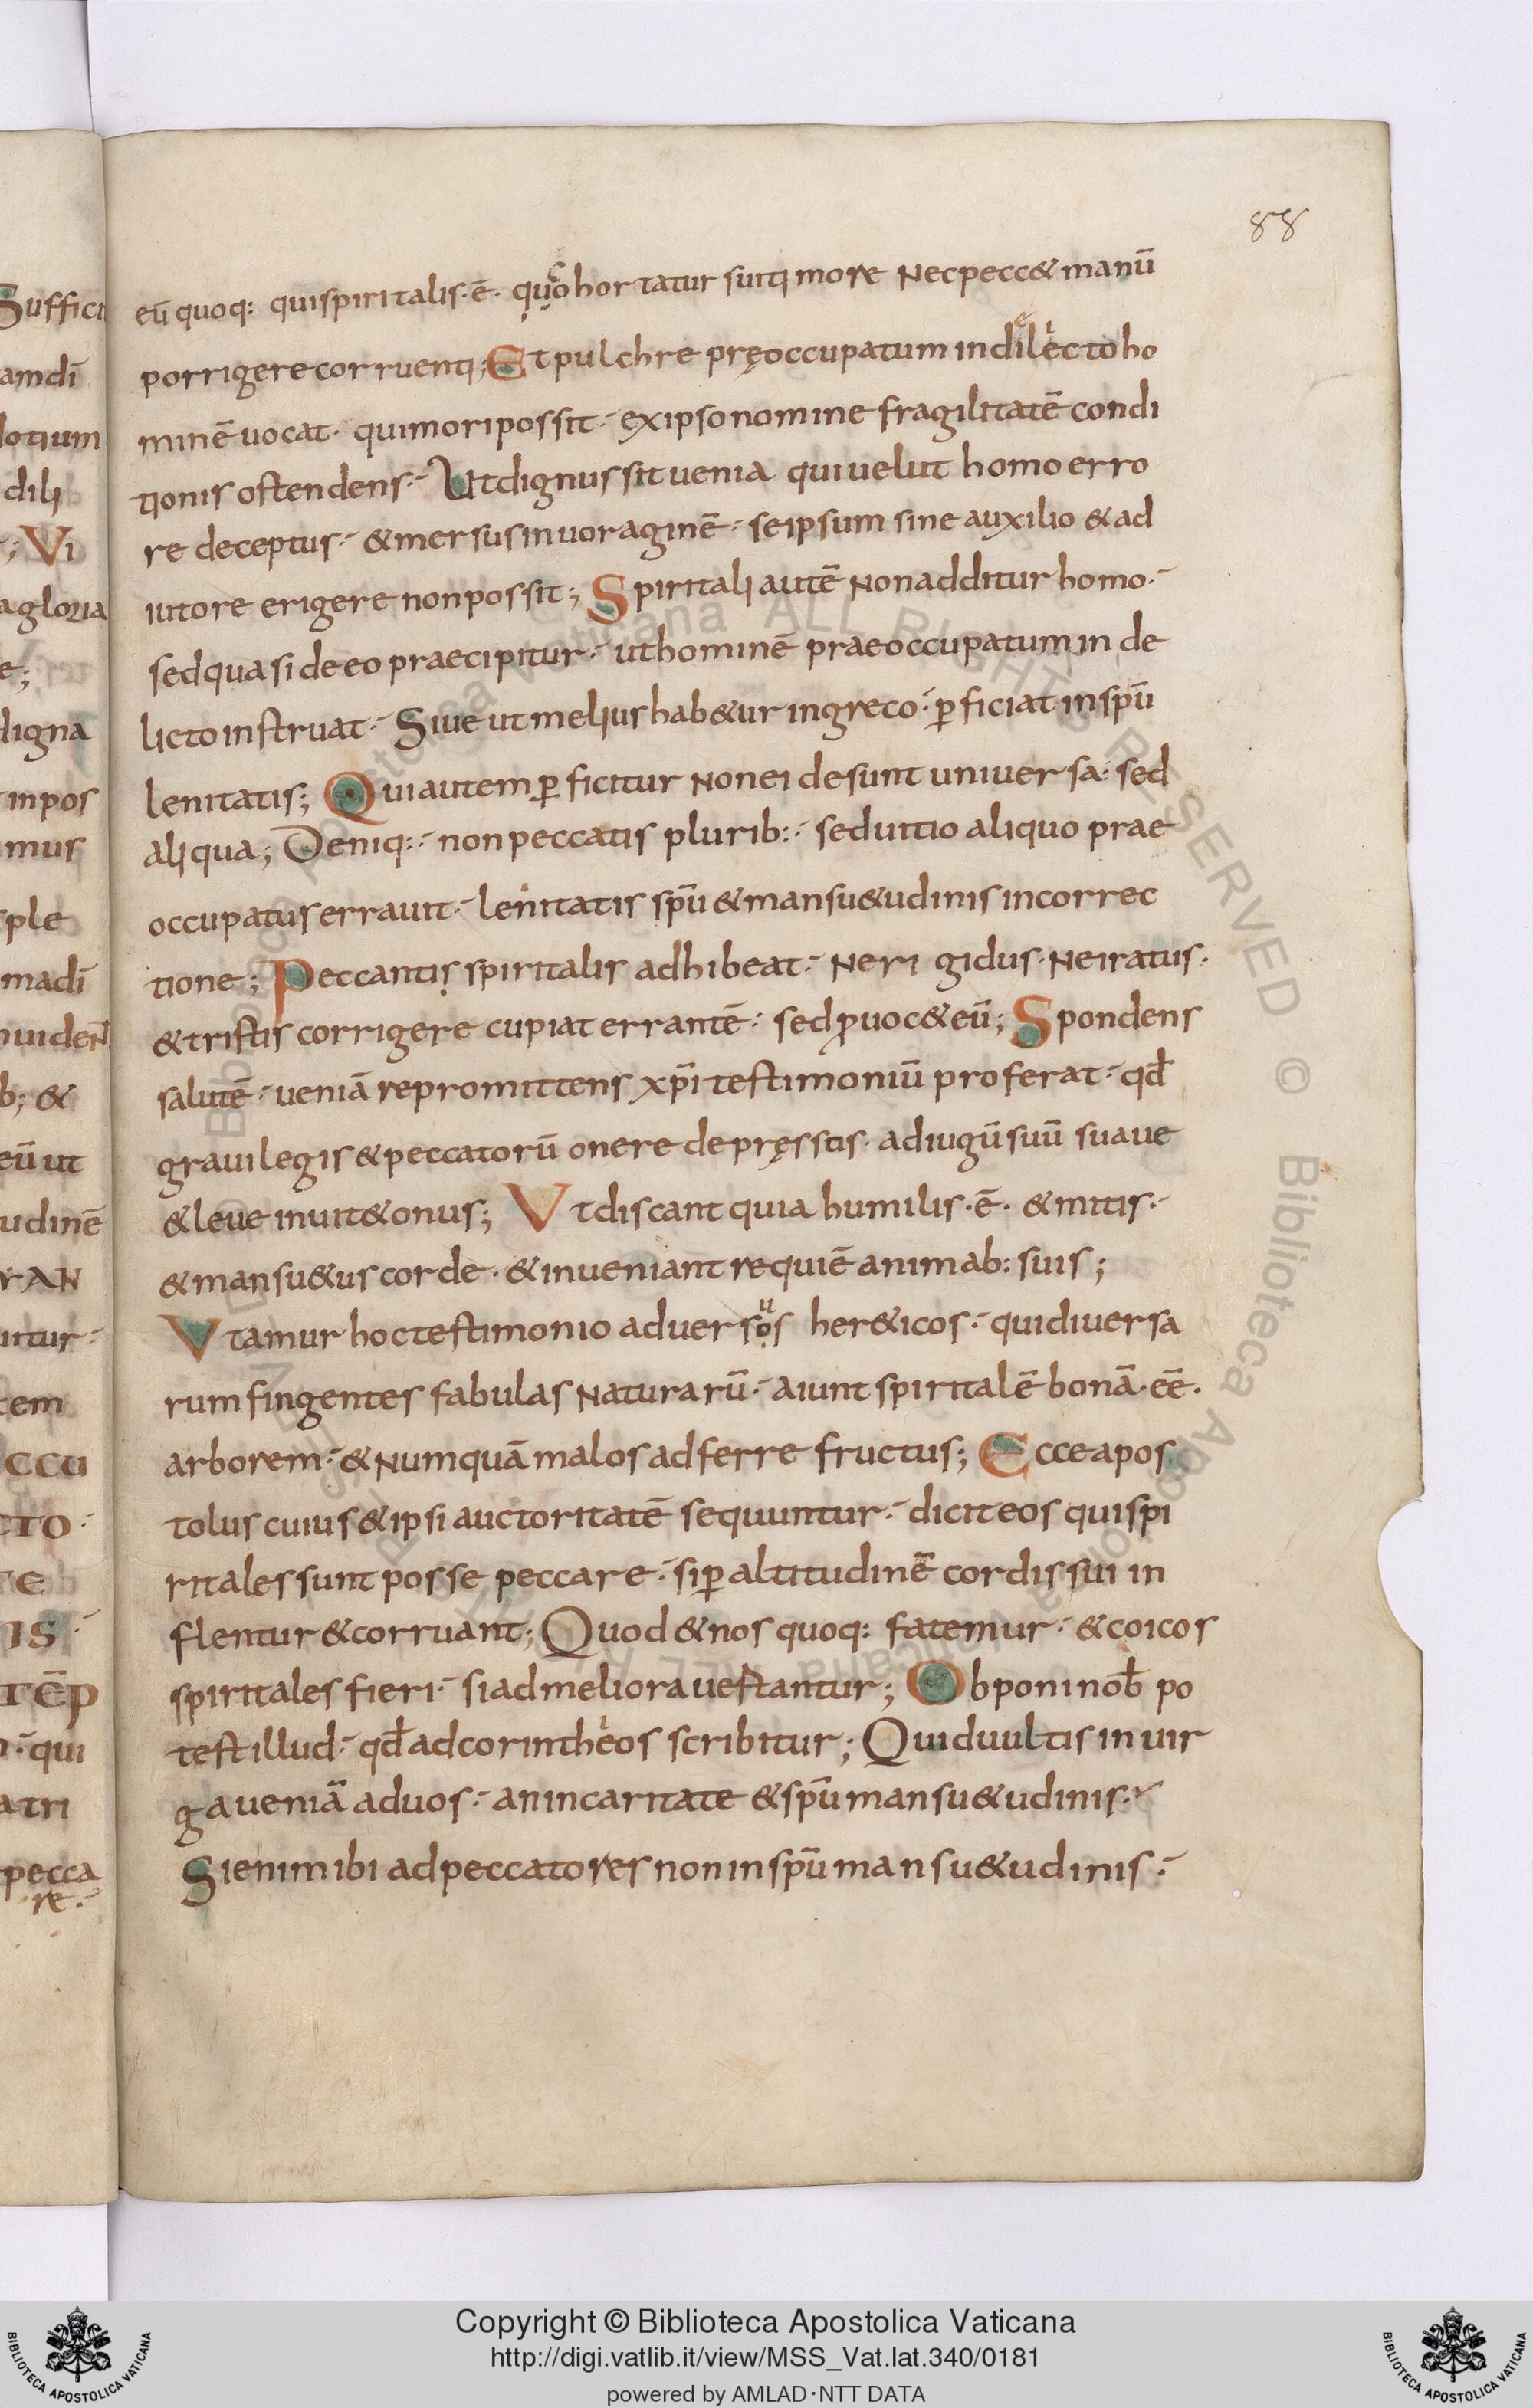 88
eū quoq: qui spiritalis · ē · quo hortatur sui timore Nec pecc& manū
porrigere corruenti; Et pulchre pręoccupatum in delicto ho
minē uocat · qui mori possit · ex ipso nomine fragilitatē condi
tionis ostendens · Ut dignus sit uenia qui uelut homo erro
re deceptus · & mersus in uoraginē · seipsum sine auxilio & ad
iutore erigere non possit; Spiritali autē Non additur homo ·
sed quasi de eo praecipitur · ut hominē praeoccupatum in de
licto instruat · Siue ut melius hab&ur in greco · ꝑficiat in spū
lenitatis; Qui autem ꝑficitur Non ei desunt uniuersa: sed
aliqua; Deniq: · non peccatis plurib: · sed uitio aliquo prae
occupatus errauit · lenitatis spū & mansu&udinis in correc
tione; Peccantis spiritalis adhibeat · Ne rigidus · Ne iratus ·
& tristis corrigere cupiat errantē · sed ꝓuoc& eū; Spondens
salutē · ueniā repromittens xp̄i testimoniū proferat · qđ
graui legis & peccatorū onere depręssis · ad iugū suū suaue
& leue inuit& onus; Vt discant quia humilis · ē · & mitis ·
& mansu&us corde · & inueniant requiē animab: suis;
Vtamur hoc testimonio aduersus her&icos · qui diuersa
rum fingentes fabulas Naturarū · aiunt spiritalē bonā · eē ·
arborem · & Numquā malos adferre fructus; Ecce apos
tolus cuius & ipsi auctoritatē sequuntur · dicit eos qui spi
ritales sunt posse peccare · si ꝑ altitudinē cordis sui in
flentur & corruant; Quod & nos quoq: fatemur · & coicos
spiritales fieri · si ad meliora uestantur; Obponi nob̄ po
test illud · qđ ad corinthios scribitur; Quid uultis in uir
ga ueniā ad uos · an in caritate & spū mansu&udinis ·
Si enim ibi ad peccatores non in spū mansu&udinis ·
Copyright © Biblioteca Apostolica Vaticana
http://digi.vatlib.it/view/MSS_Vat.lat.340/0181
powered by AMLAD·NTT DATA